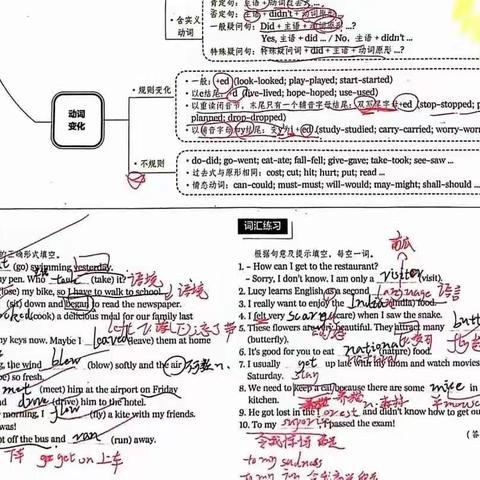 肯定句：主语+动词过去式...
否定句：主语+didn't+动词原形...
一般疑问句：Did+主语+动词原形...?
Yes, 主语+did... / No, 主语+didn't...
特殊疑问句：特殊疑问词+did+主语+动词原形...?
• 含实义
动词
动词
变化
• 规则变化
• 一般：+ed (look-looked; play-played; start-started)
• 以e结尾：+d (live-lived; hope-hoped; use-used)
• 以重读闭音节，末尾只有一个辅音字母结尾：双写尾字母+ed (stop-stopped; p
planned; drop-dropped)
• 以辅音字母加y结尾：变y为i+ed (study-studied; carry-carried; worry-worr
• 不规则
• do-did; go-went; eat-ate; fall-fell; give-gave; take-took; see-saw ...
• 过去式与原形相同：cost; cut; hit; hurt; put; read ...
• 情态动词：can-could; must-must; will-would; may-might; shall-should ...
的正确形式填空。
(go) swimming yesterday.
my pen. Who (take) it? 语境
(lose) my bike, so I have to walk to school. 语境
(sit) down and began to read the newspaper.
cooked (cook) a delicious meal for our family last
my keys now. Maybe I leaved (leave) them at home
g, the wind blow (blow) softly and the air
be) so fresh.
met (meet) him at the airport on Friday
and drove (drive) him to the hotel.
morning, I flow (fly) a kite with my friends.
was!
ot off the bus and ran (run) away.
下车 get on 上车
词汇练习
根据句意及提示填空，每空一词。
1. - How can I get to the restaurant?
- Sorry, I don't know. I am only a visitor (visit).
2. Lucy learns English as a second language 语言
3. I really want to enjoy the India (India) food.
4. I felt very scary (scare) when I saw the snake.
5. These flowers are very beautiful. They attract many butt
(butterfly).
6. It's good for you to eat national (nature) food.
7. I usually get up late with my mom and watch movies
Saturday. stay
8. We need to keep a cat because there are some mice in
kitchen. 养猫 mouse
9. He got lost in the forest and didn't know how to get ou
10. To my surprise, I passed the exam!
令我惊讶的是
to my sadness
to my